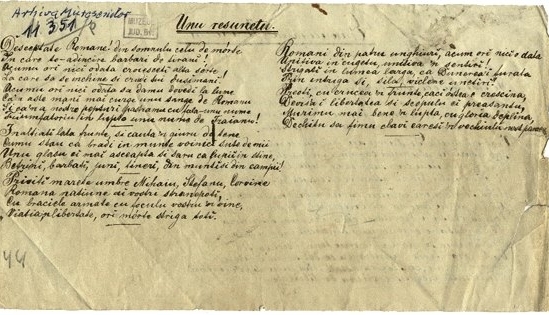 Arhiva Muresenilor
11.351
Unu resunetu.
Desceptate Romane din somnulu celu de mórte
In care te-adincire barbari de tirani!
Acumu ori nici odata croiesceti alta sorte
La care sa se inchine si crudii tei dusimani!
Acumu ori nici odata sa damu dovedi la lume
Ca'n aste mani mai curge unu sange de Romanu
Si ca'n a nostre pepturi pastramu cu fala-unu nume
Triumfatoriu in lupte unu nume de Traianu!
Inaltiati lata frunte, si cauta'n giuru de tene
Cumu stau ca bradi in munte voinici sute de mii
Unu glasu ei mai ascepta si saru ca lupii in stine,
Betrani, barbati, juni, tineri, din munti si din campii!
Priviti marete umbre Mihaiu, Stefanu, Corvine
Romana natiune ai vostri stranepoti,
Cu braciele armate cu foculu vostru'n vine,
Viatia'n libertate, ori mórte striga toti.
Romani din patru unghiuri, acum ori nici odata
Uniti-va in cugetu, uniti-va'n semtiri!
Strigati in lumea larga, ca Dunerea-i furata
Prin intriga si, sila, viclene
Preoti, cu crucea'n frunte, caci óstea e crestina,
Devisa-i libertatea si scopulu ei preasantu,
Murimu mai bene'n lupta, cu gloria deplina,
Decâtu sa fimu sclavi earesi'n vechiulu nost'
44